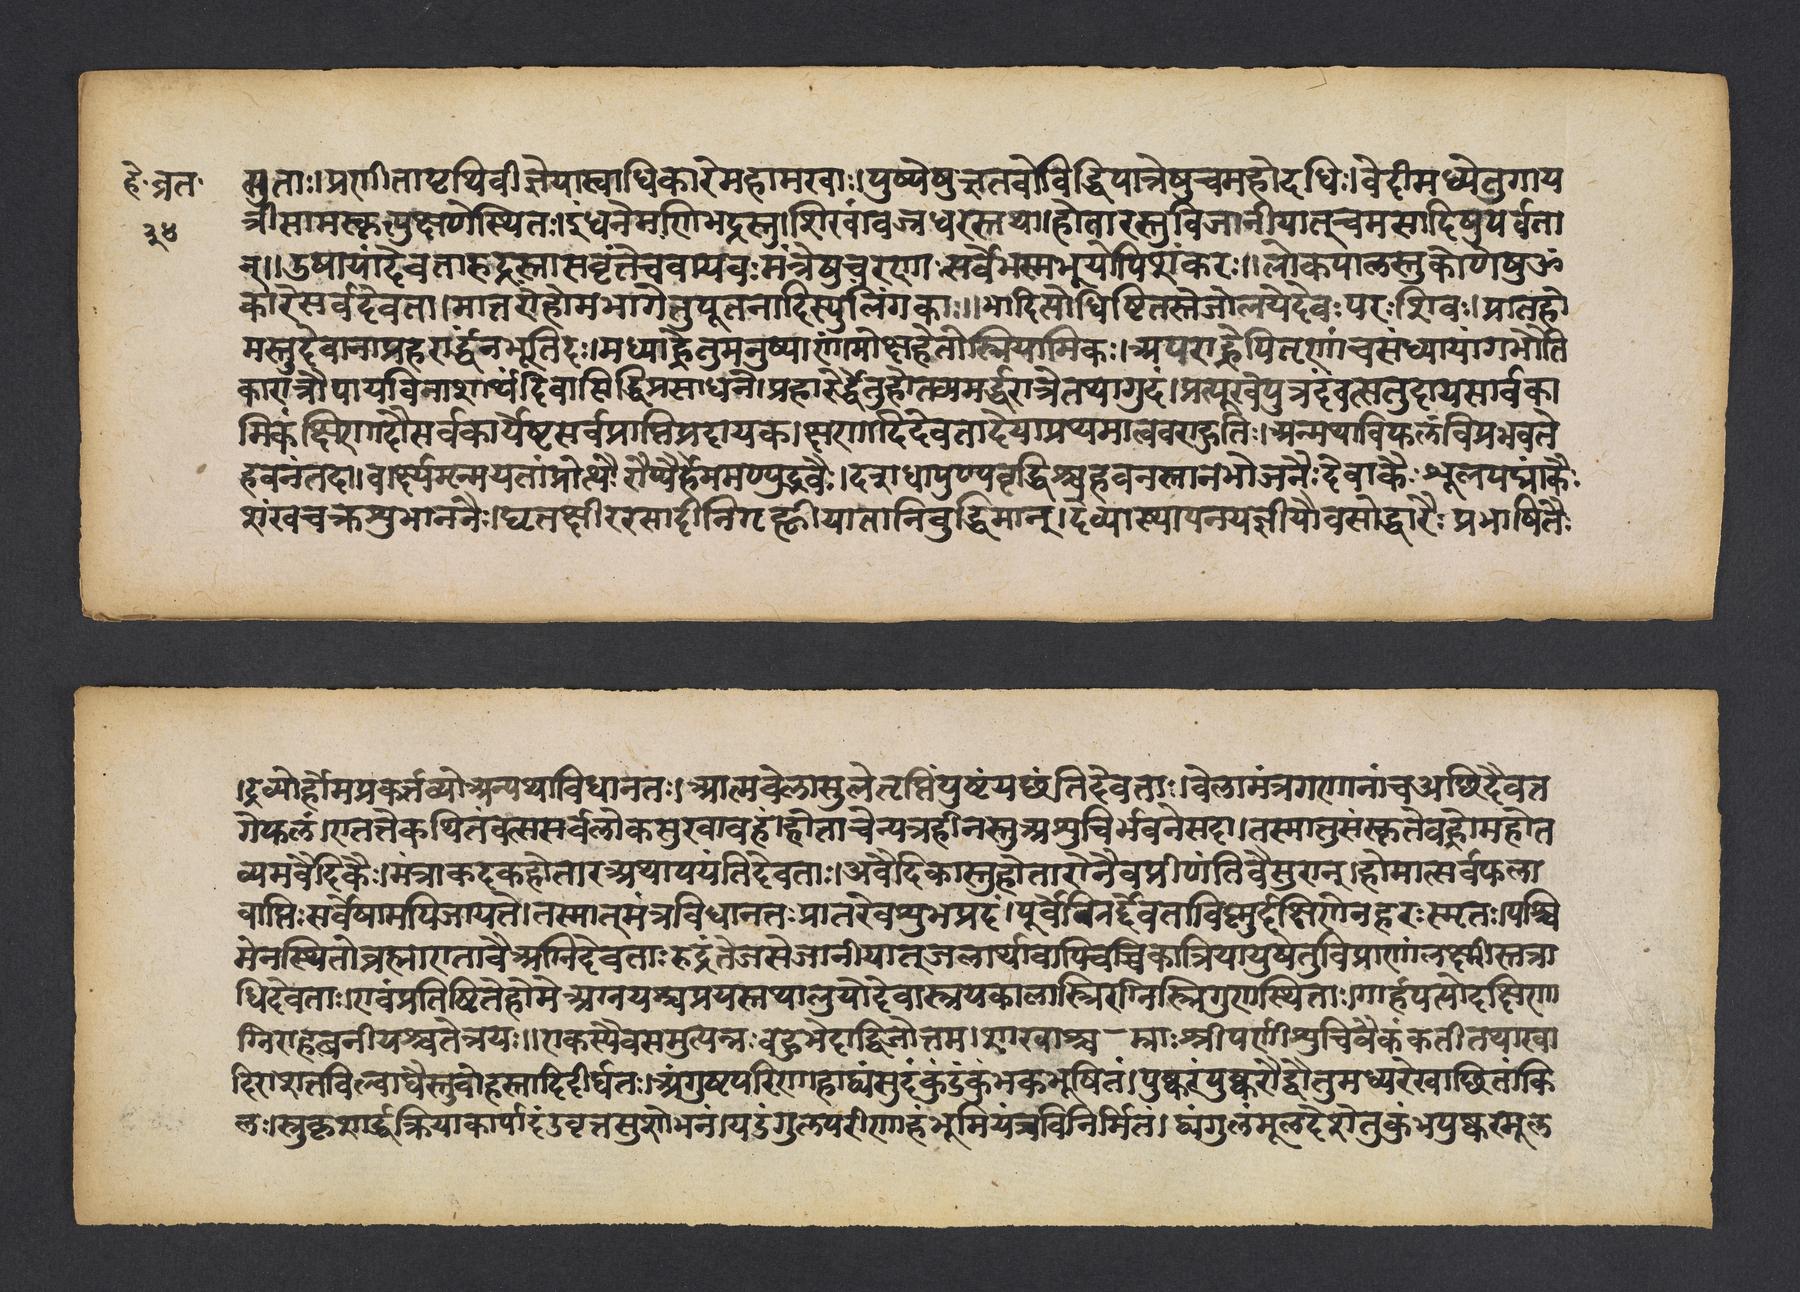 हे॰ व्रत॰
२४
स्रुताः।प्रणीतापृथिवीज्ञेयास्वाधिकारेमहामखाः।पुष्येषुऋतवोविद्धिपात्रेषुचमहोदधिः।वेदीमध्येतुगाय
त्रीसामस्कृत्पुक्षणेस्थितः।इंधनेमणिभद्रस्तुशिखांवज्रधरस्तथा।होतारस्तुविजानीयात्चमसादिषुपर्वता
न्॥उषायांदेवतारुद्रस्तासवृंतेचवायवः मंत्रेषुचरणः सर्वेभस्मभूयोपिशंकरः॥लोकपालस्तुकोणेषुॐ
कारेसर्वदेवता।मातरोहोमभागेतुपूतनादिस्पुलिंगकाः॥भादिसोधिष्टितस्तेजोलयेदेवः परः शिवः।प्रातर्हो
मस्तुदेवानाप्रहरार्द्धेनभूतिदः।मध्याह्नेतुमनुष्याणांमोक्षहेतोस्त्रियामिकः।अपराह्नेपितॄणांचसंध्यायांगभौति
कारात्रौपायविनाशार्थंदिवासिद्धिप्रसाधने।प्रहारेर्द्धेतुहोतव्यमर्द्धरात्रेतथागुदं।प्रत्पूखेपुत्रदंवत्सतुदायसार्वका
मिकंक्षिणादौसर्वकार्येष्टसर्वप्राप्तिप्रदायक।क्षणादिदेवतादेयाप्रथमात्ववराहुतिः।अन्मथाविफलंविप्रभवते
हवनंतदा।वार्क्ष्यमृन्मयतांम्रोत्थैः रौप्यैर्हेममपण्पुद्रवैः।दत्राधापुण्यवृद्धिश्चहवनस्नानभोजनैः देवाकैः शूलपद्मांकैः
शंखचक्रशुभाननैः।घृतक्षीररसादीनिगृह्णीयातानिबुद्धिमान्।दव्यास्थापनयज्ञीयौवसोद्धारैः प्रभाषितैः
।द्रव्योर्होमप्रकर्त्तव्योअन्यथाविधानतः।आत्मवेलासुलेतृप्तिंपुष्टंयछंतिदेवताः।वेलामंत्रगणानांचअछिदैवत
गेफलं।एतत्तेकथितंवत्ससर्वलोकसुखावहं।होताचेन्यत्रहीनस्तुअशुचिर्भवनेसदा।तस्मात्तुसंस्कृतेवह्नोमहोत
व्यमवैदिकैः।मंत्राकदकहोतारअथापयंतिदेवताः।अवैदिकास्तुहोतारोनैवप्रीणंतिवैसुरान्।होमात्सर्वफला
वाप्तिः सर्वेषामपिजायते।तस्मात्मंत्रविधानतः प्रातरेवशुभप्रदं।पूर्वे र्द्देवताविष्णुर्दक्षिणेनहरः स्मृतः।पश्चि
मेनस्थितोब्रह्माएतावैअग्निदेवताः रुद्रंतेजसेजानीयात्जलार्थावाश्विचिकात्रियायुषतुविप्राणांलक्ष्मीस्तत्रा
धिदेवताः।एवंप्रतिष्ठितेहोमेअग्नयश्चप्रयस्तथालुयोदेवास्त्रयकालास्त्रिरग्निस्त्रिगुणस्थिताः।गार्हपत्योदक्षिणा
ग्निराहवनीयश्चतेत्रयः॥एकस्यैवसमुत्पन्नः बहुभेदाद्विजोत्तम।शाखाश्च म्नाः श्रीपर्णीशुचिवैकंकतीतथाखा
दिराशतविल्वाद्यैस्तुवोहस्तादिदीर्घतः।अंगुष्टपरिणाहाद्यंसुदंकुंडंकुंभकभूषितं।पुष्करंपुष्करौद्वौतुमध्यरेखाछितांकि
लः।स्रुक्रृशार्द्धक्रियाकार्यादंडवृत्तसुशोभनं।षडंगुलपरीणाहंभूमियंत्रविनिर्मितं।द्यंगुलंमूलदेशेतुकुंभपुष्करमूल